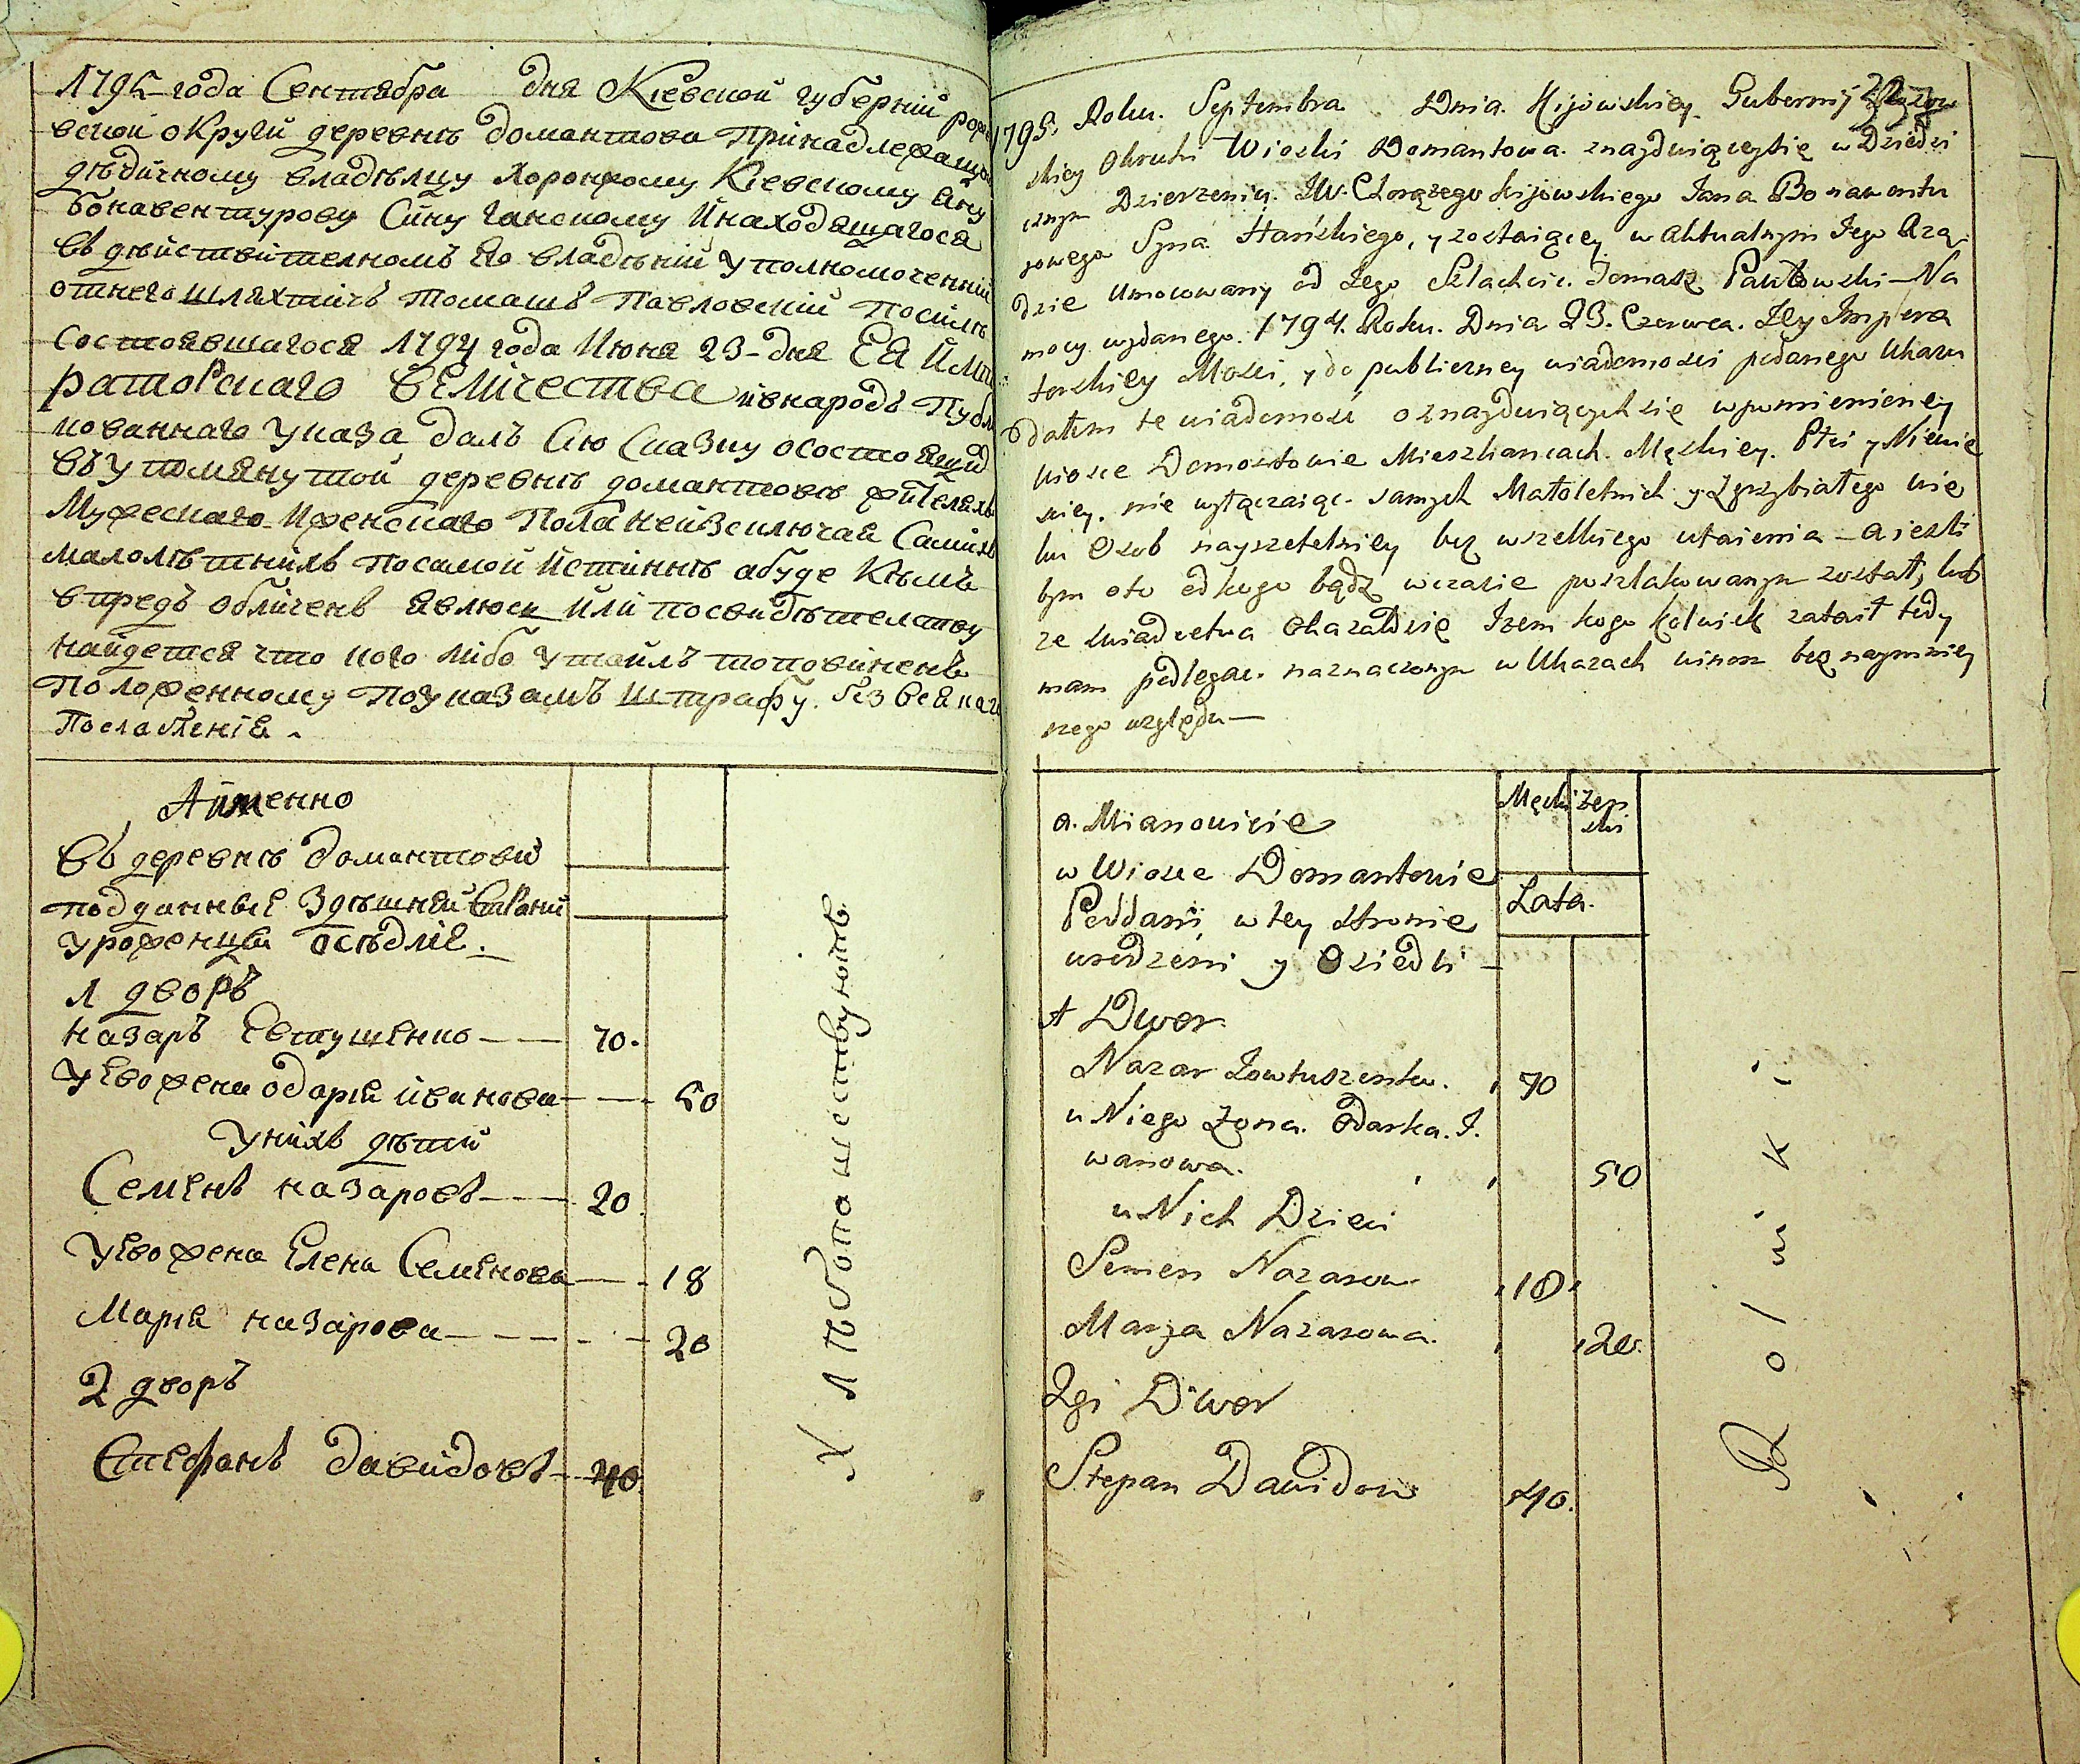 1795 года Сентября дня Кіевской губерніи
вской округи деревнѣ домантова принадлежаща
дѣдичному владѣлцу хоронжому Кіевскому Яну
Бонавентурову Сину ганскому и находящагося
въ дѣйствителномъ Его владѣніи уполномоченній
отнего шляхтичъ томашъ Павловскій Посилѣ
состоявшагося 1794 года Июня 23-дня ЕЯ Имп
раторскаго величества и внародъ Публ
кованнаго указа далъ сію сказку осостоящи
въ упомянутой деревнѣ домантовѣ жителяхъ
Мужескаго и женского Пола неизключая Самихъ
малолѣтнихъ посамой истиннѣ абуде Кѣмъ
впредъ обличенъ явлюсь или посвидѣтелству
найдется что кого либо утаилъ то повиненъ
положенному поуказамъ штрафу. без всяка
Послабленія.
Аименно
въ деревнѣ Домантовй
подданныѣ здѣшней страни
уроженци осѣдліе.
1 дворъ
назаръ Евтушенко 70.
У Ево жена одарія иванова 50
Унихъ дѣти
Семенъ назаровъ 20
У Ево жена Елена Семенова 18
Марія назарова 20
2 дворъ
Стефанъ давидовъ 40.
Хлѣбопашествуютъ
1795. Roku. Septembra Dnia. Kijowskiey Gubernij
skiey Okruhi Wioski Domantowa. znayduiąceysię w Dziedzi
cznym Dzierzeniu. JW. Chorążego kijowskiego Jana Bonawentu
rowego Syna Hańskiego, y zostaiącey w aktualnym Jego Rzą
dzie Umocowany od Jego Szlachcic. Tomasz Pawłowski Na
mocy wydanego. 1794. Roku. Dnia 23. Czerwca. Jey Impera
torskiey Mości, y do publiczney wiadomości podanego Ukazu
dałem tę wiadomość o znayduiących się w pomienioney
wiosce Domontowie Mieszkancach. Męskiey. Płci y Niewie
sciey. nie wyłączaiąc. samych Małoletnich y Zgrzybiałego wie
ku Osob nayrzetelniey bez wszelkiego utaienia – a jeżli
bym oto od kogo bądz wczasie poszlakowanym został, lub
ze swiadectwa okazałosię Iżem kogo kolwiek zataił tedy
mam podlegać naznaczonym w Ukazach winom bez naymniey
szego względu
a. Mianowicie
Męski Żeń
ski
w Wiosce Domantowie
Lata.
Poddani w tey stronie
urodzeni y Osiedli
A Dwor.
Nazar Jowtuszenko. 70
u Niego Żona. Odarka. I.
wanowa. 50
u Nich Dzieci
Semen Nazarow 18
Marya Nazarowa. 20.
2gi Dwor
Stepan Dawidow 40.
Rolniki